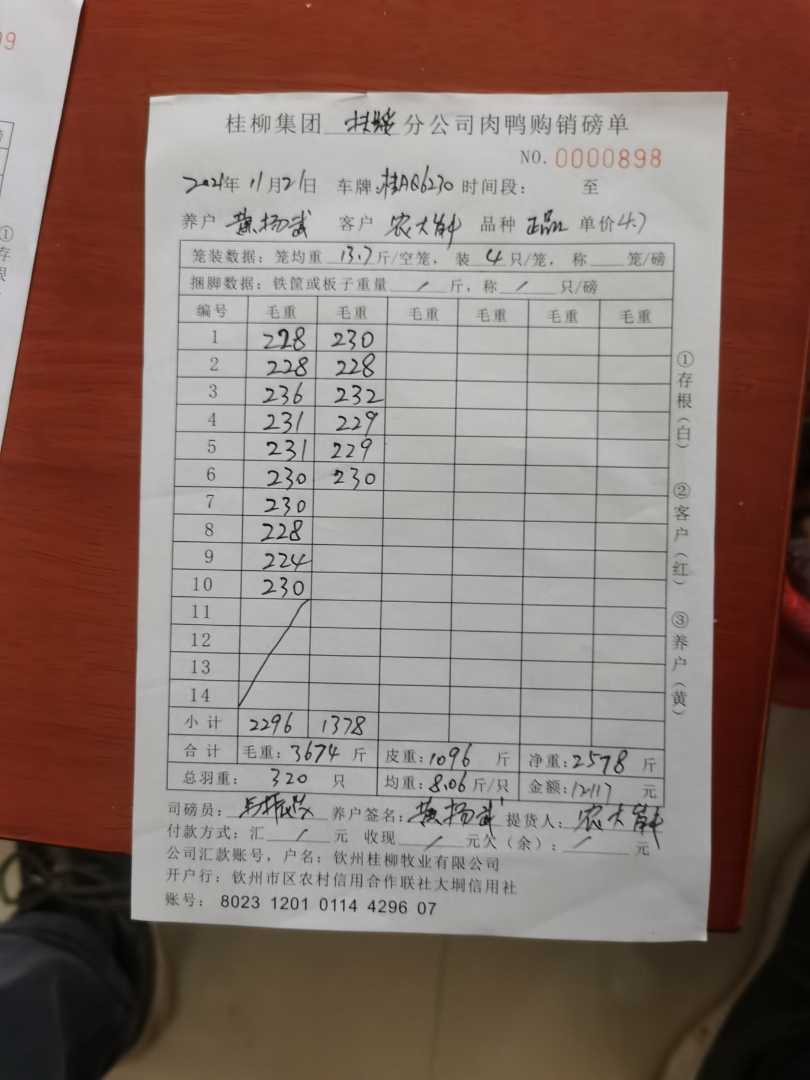 桂柳集团 扶绥 分公司肉鸭购销磅单
NO. 0000898
2021年 11月21日 车牌:桂AQ6230 时间段: 至
养户 黄扬武 客户 农大 品种 正品 单价4.7
笼装数据:笼均重 13.7 斤/空笼,装 4 只/笼,称 笼/磅
捆脚数据:铁筐或板子重量 / 斤,称 / 只/磅
编号 毛重 毛重 毛重 毛重 毛重 毛重
1 228 230
2 228 228
3 236 232
4 231 229
5 231 229
6 230 230
7 230
8 228
9 224
10 230
11
12
13
14
小计 2296 1378
合计 毛重:3674 斤 皮重:1096 斤 净重:2578 斤
总羽重: 320 只 均重:8.06斤/只 金额:12117 元
司磅员: 养户签名:黄扬武 提货人:农大
付款方式:汇 / 元 收现 / 元欠(余): / 元
公司汇款账号,户名:钦州桂柳牧业有限公司
开户行:钦州市区农村信用合作联社大垌信用社
账号: 8023 1201 0114 4296 07
①存根(白) ②客户(红) ③养户(黄)
99
①存根